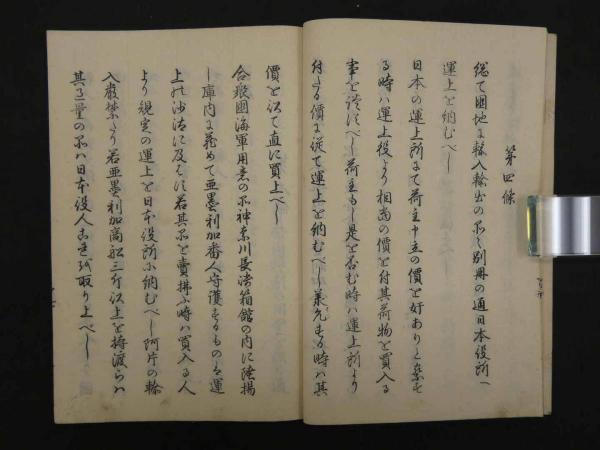 第四條
總て國地に輸入輸出の品々別冊の通日本役所へ
運上を納むへし
日本の運上所にて荷主申立の價を奸ありと察する
時ハ運上役より相當の價を付其荷物を買入る
事を談すへし荷主もし是を否む時ハ運上所より
付たる價に從て運上を納むへし承允する時ハ其
價を以て直に買上へし
合衆國海軍用意の品神奈川長崎箱館の内に陸揚
し庫内に蔵めて亜墨利加番人守護するものハ運
上の沙汰に及はす若其品を賣拂ふ時ハ買入る人
より規定の運上を日本役所に納むへし阿片の輸
入嚴禁たり若亜墨利加商船三斤以上を持渡らハ
其過量の品ハ日本役人是を取り上へし